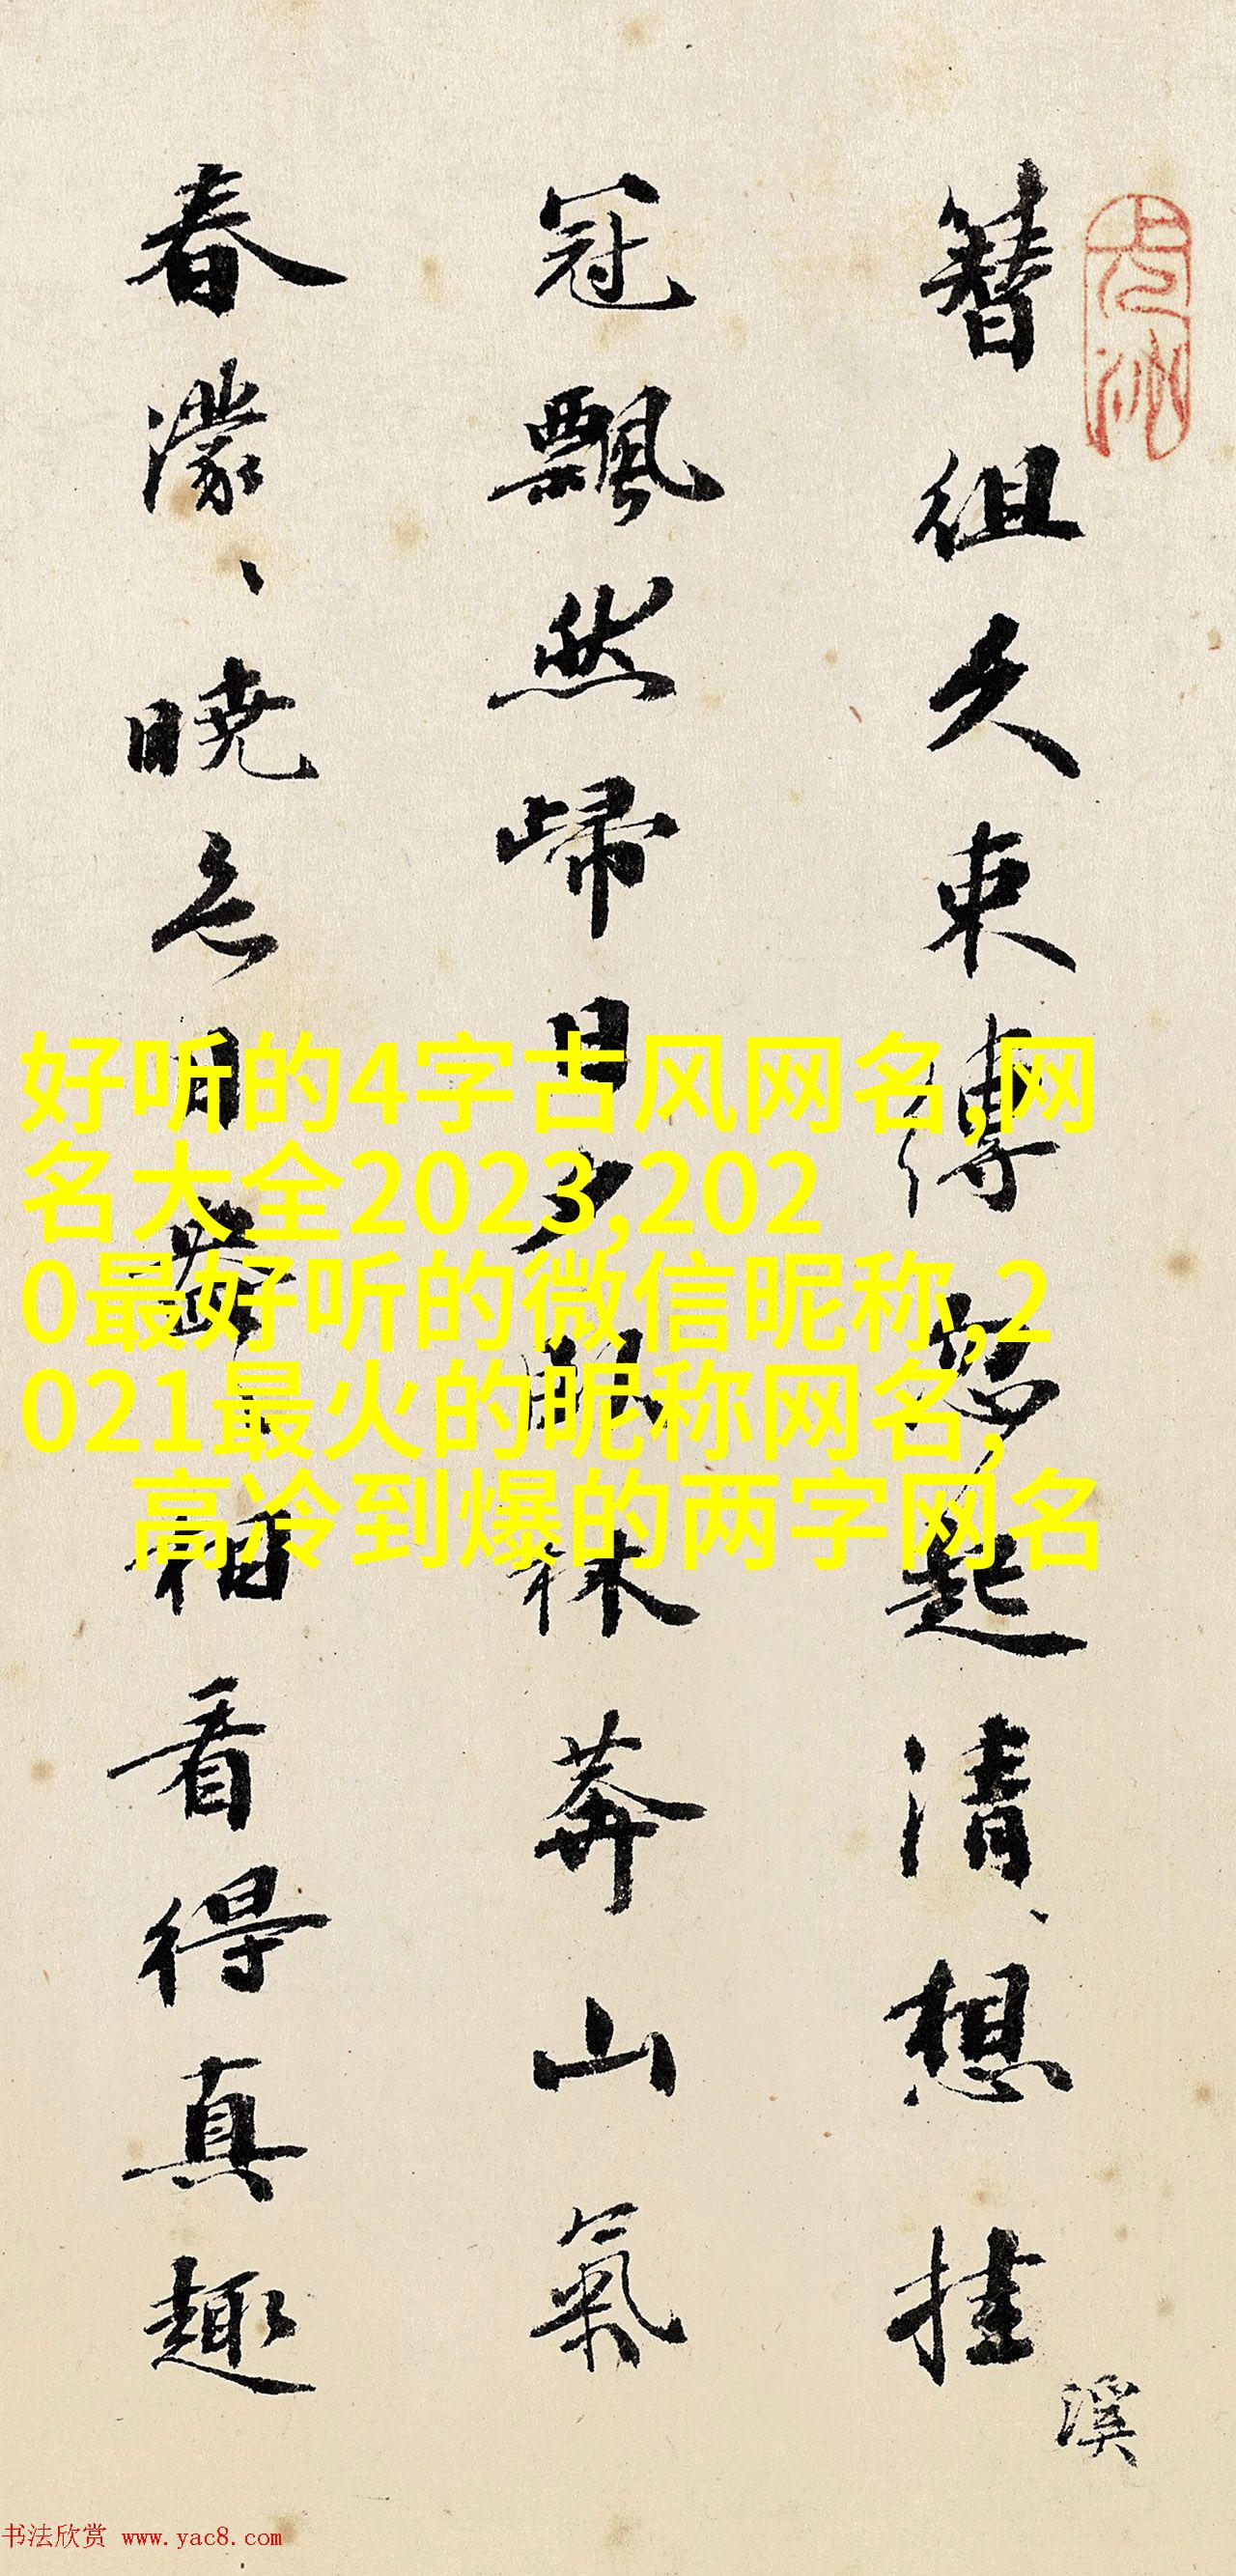 簪组久束缚忽起清想挂
冠飘然歸日夕眠林莽山氣
春濛、晓
相看得真趣
溪
好听的4字古风网名,网
名大全2023,202
0最好听的微信昵称,2
021最火的昵称网名,
高冷到爆的两字网名
书法欣赏 www.yac8.com